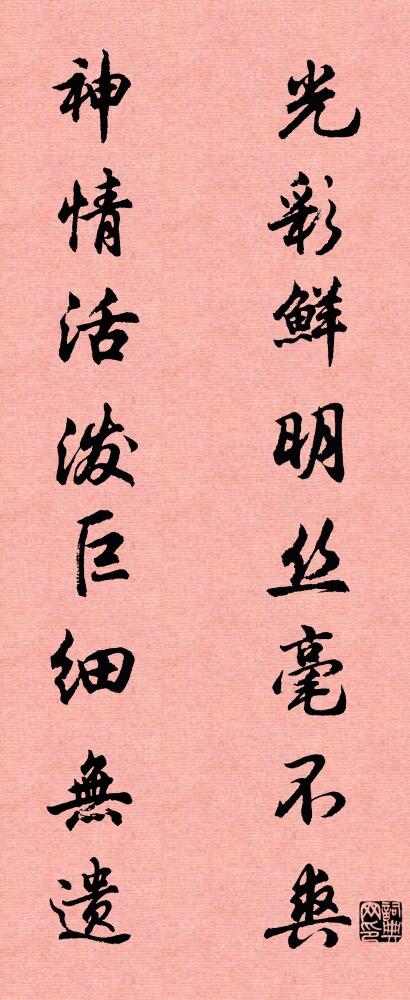 光彩鲜明丝毫不爽
神情活泼巨细無遗
詞典网印